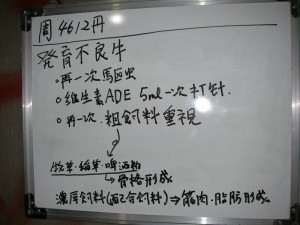 周4612丹
発育不良牛
○再一次馬区虫
○維生素ADE 5ml一次打針.
○再一次.粗飼料重視
牧草・稲草・啤酒粕
→骨格形成
濃厚飼料(配合飼料)⇒筋肉・脂肪形成